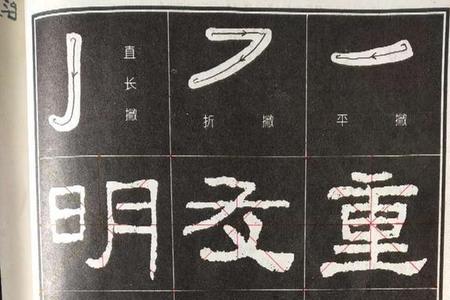 直长撇
折撇
平撇
明 重